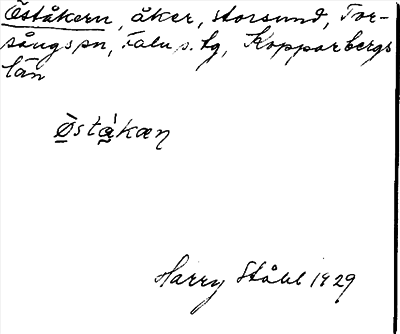 Öståkern, åker, Storsund, Tor-
sångs sn, Falu s. tg, Kopparbergs
län
Østakæn
Harry Ståhl 1929